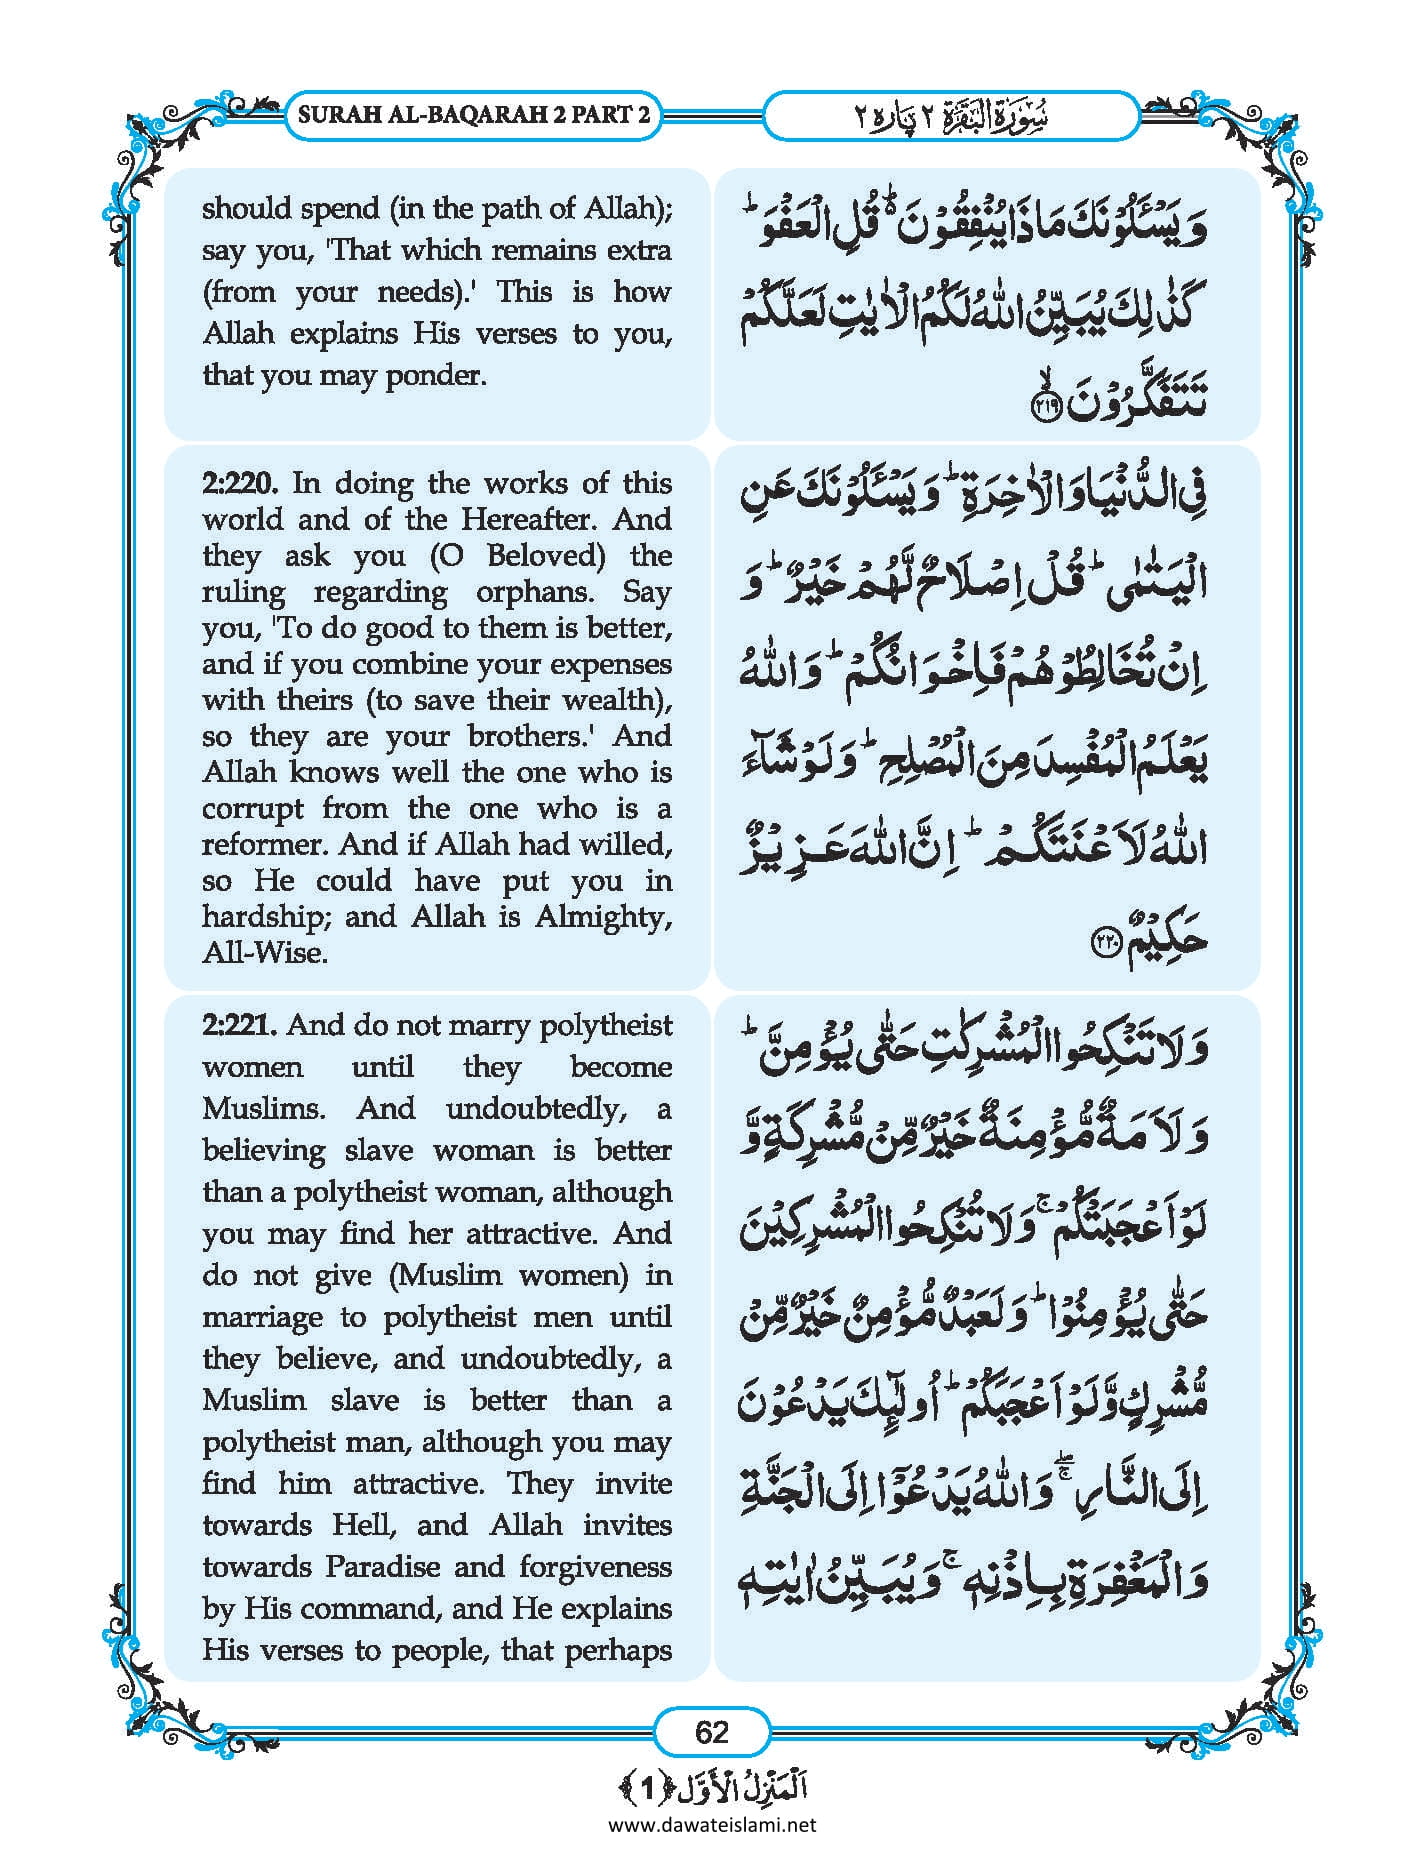 SURAH AL-BAQARAH 2 PART 2
سُوْرَةُ الْبَقَرَة ٢ پاره ٢
should spend (in the path of Allah);
say you, 'That which remains extra
(from your needs).' This is how
Allah explains His verses to you,
that you may ponder.
وَ یَسْـَٔلُوْنَكَ مَا ذَا یُنْفِقُوْنَ ۬ؕ قُلِ الْعَفْوَ ؕ
كَذٰلِكَ یُبَیِّنُ اللّٰهُ لَكُمُ الْاٰیٰتِ لَعَلَّكُمْ
تَتَفَكَّرُوْنَ ۙ﴿۲۱۹﴾
2:220. In doing the works of this
world and of the Hereafter. And
they ask you (O Beloved) the
ruling regarding orphans. Say
you, 'To do good to them is better,
and if you combine your expenses
with theirs (to save their wealth),
so they are your brothers.' And
Allah knows well the one who is
corrupt from the one who is a
reformer. And if Allah had willed,
so He could have put you in
hardship; and Allah is Almighty,
All-Wise.
فِی الدُّنْیَا وَ الْاٰخِرَةِ ؕ وَ یَسْـَٔلُوْنَكَ عَنِ
الْیَتٰمٰی ؕ قُلْ اِصْلَاحٌ لَّهُمْ خَیْرٌ ؕ وَ
اِنْ تُخَالِطُوْهُمْ فَاِخْوَانُكُمْ ؕ وَ اللّٰهُ
یَعْلَمُ الْمُفْسِدَ مِنَ الْمُصْلِحِ ؕ وَ لَوْ شَآءَ
اللّٰهُ لَاَعْنَتَكُمْ ؕ اِنَّ اللّٰهَ عَزِیْزٌ
حَكِیْمٌ ﴿۲۲۰﴾
2:221. And do not marry polytheist
women until they become
Muslims. And undoubtedly, a
believing slave woman is better
than a polytheist woman, although
you may find her attractive. And
do not give (Muslim women) in
marriage to polytheist men until
they believe, and undoubtedly, a
Muslim slave is better than a
polytheist man, although you may
find him attractive. They invite
towards Hell, and Allah invites
towards Paradise and forgiveness
by His command, and He explains
His verses to people, that perhaps
وَ لَا تَنْكِحُوا الْمُشْرِكٰتِ حَتّٰی یُؤْمِنَّ ؕ
وَ لَاَمَةٌ مُّؤْمِنَةٌ خَیْرٌ مِّنْ مُّشْرِكَةٍ وَّ
لَوْ اَعْجَبَتْكُمْ ۚ وَ لَا تُنْكِحُوا الْمُشْرِكِیْنَ
حَتّٰی یُؤْمِنُوْا ؕ وَ لَعَبْدٌ مُّؤْمِنٌ خَیْرٌ مِّنْ
مُّشْرِكٍ وَّ لَوْ اَعْجَبَكُمْ ؕ اُولٰٓئِكَ یَدْعُوْنَ
اِلَی النَّارِ ۚۖ وَ اللّٰهُ یَدْعُوْۤا اِلَی الْجَنَّةِ
وَ الْمَغْفِرَةِ بِاِذْنِهٖ ۚ وَ یُبَیِّنُ اٰیٰتِهٖ
62
اَلْمَنْزِلُ الْاَوَّل ﴿1﴾
www.dawateislami.net